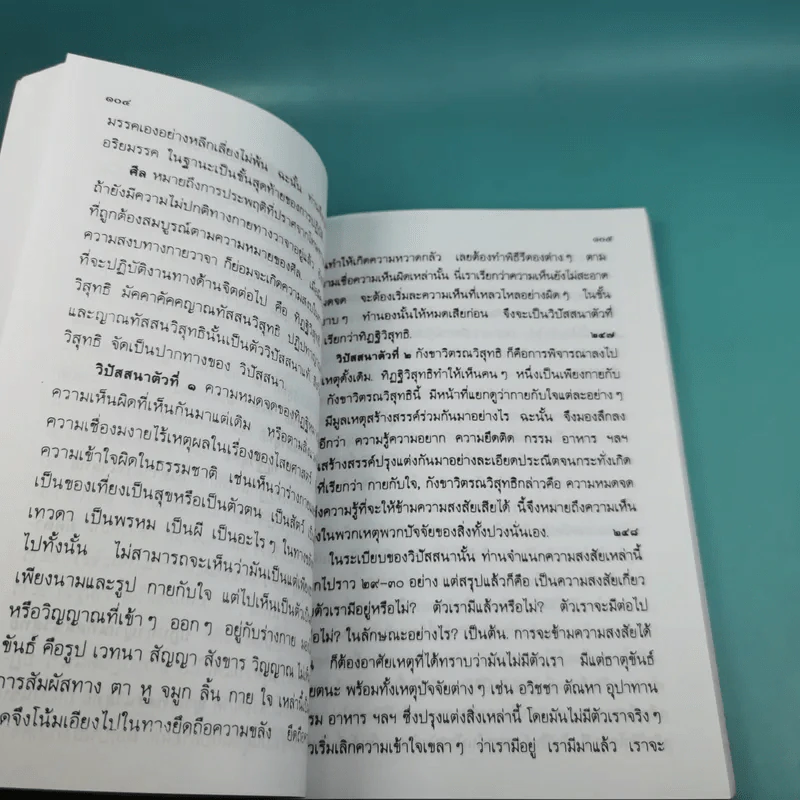 ๑๐๔
มรรคเองอย่างหลีกเลี่ยงไม่พ้น ฉะนั้น
อริยมรรค ในฐานะเป็นขั้นสุดท้ายของการ
ศีล หมายถึงการประพฤติที่ปราศจาก
ถ้ายังมีความไม่ปกติทางกายทางวาจาอยู่แล้ว
ที่ถูกต้องสมบูรณ์ตามความหมายของศีล.
ความสงบทางกายวาจา ก็ย่อมจะเกิดความสงบ
ที่จะปฏิบัติงานทางด้านจิตต่อไป คือ ทิฏฐิวิสุทธิ
วิสุทธิ มัคคาคัคคญาณทัสสนวิสุทธิ
และญาณทัสสนวิสุทธินั้นเป็นตัววิปัสสนาแท้
วิสุทธิ จัดเป็นปากทางของ วิปัสสนา.
วิปัสสนาตัวที่ ๑ ความหมดจดของทิฏฐิ
ความเห็นผิดที่เห็นกันมาแต่เดิม หรือตาม
ความเชื่องมงายไร้เหตุผลในเรื่องของไสยศาสตร์
ความเข้าใจผิดในธรรมชาติ เช่นเห็นว่าร่างกาย
เป็นของเที่ยงเป็นสุขหรือเป็นตัวตน เป็นสัตว์
เทวดา เป็นพรหม เป็นผี เป็นอะไรๆ ในทาง
ไปทั้งนั้น ไม่สามารถจะเห็นว่ามันเป็นแต่เพียง
เพียงนามและรูป กายกับใจ แต่ไปเห็นเป็นตัว
หรือวิญญาณที่เข้าๆ ออกๆ อยู่กับร่างกาย
ขันธ์ คือรูป เวทนา สัญญา สังขาร วิญญาณ
การสัมผัสทาง ตา หู จมูก ลิ้น กาย ใจ เหล่านี้
จึงโน้มเอียงไปในทางยึดถือความขลัง
๑๓๕
ทำให้เกิดความหวาดกลัว เลยต้องทำพิธีรีตองต่างๆ ตาม
มเชื่อความเห็นผิดเหล่านั้น นี่เราเรียกว่าความเห็นยังไม่สะอาด
มดจด จะต้องเริ่มละความเห็นที่เหลวไหลอย่างผิดๆ ในชั้น
าบๆ ทำนองนั้นให้หมดเสียก่อน จึงจะเป็นวิปัสสนาตัวที่
เรียกว่าทิฏฐิวิสุทธิ. ๒๔๗
วิปัสสนาตัวที่ ๒ กังขาวิตรณวิสุทธิ ก็คือการพิจารณาลงไป
เหตุดั้งเดิม. ทิฏฐิวิสุทธิทำให้เห็นคนๆ หนึ่งเป็นเพียงกายกับ
กังขาวิตรณวิสุทธินี้ มีหน้าที่แยกดูว่ากายกับใจแต่ละอย่างๆ
มีมูลเหตุสร้างสรรค์ร่วมกันมาอย่างไร ฉะนั้น จึงมองลึกลง
อีกว่า ความรู้ความอยาก ความยึดติด กรรม อาหาร ฯลฯ
สร้างสรรค์ปรุงแต่งกันมาอย่างละเอียดประณีตจนกระทั่งเกิด
ที่เรียกว่า กายกับใจ, กังขาวิตรณวิสุทธิกล่าวคือ ความหมดจด
งความรู้ที่จะให้ข้ามความสงสัยเสียได้ นี้จึงหมายถึงความเห็น
งในพวกเหตุพวกปัจจัยของสิ่งทั้งปวงนั่นเอง. ๒๔๘
ในระเบียบของวิปัสสนานั้น ท่านจำแนกความสงสัยเหล่านี้
กไปราว ๒๙-๓๐ อย่าง แต่สรุปแล้วก็คือ เป็นความสงสัยเกี่ยว
ตัวเรามีอยู่หรือไม่? ตัวเรามีแล้วหรือไม่? ตัวเราจะมีต่อไป
อไม่? ในลักษณะอย่างไร? เป็นต้น. การจะข้ามความสงสัยได้
ก็ต้องอาศัยเหตุที่ได้ทราบว่ามันไม่มีตัวเรา มีแต่ธาตุขันธ์
ยตนะ พร้อมทั้งเหตุปัจจัยต่างๆ เช่น อวิชชา ตัณหา อุปาทาน
รม อาหาร ฯลฯ ซึ่งปรุงแต่งสิ่งเหล่านี้ โดยมันไม่มีตัวเราจริงๆ
วเริ่มเลิกความเข้าใจเขลาๆ ว่าเรามีอยู่ เรามีมาแล้ว เราจะ